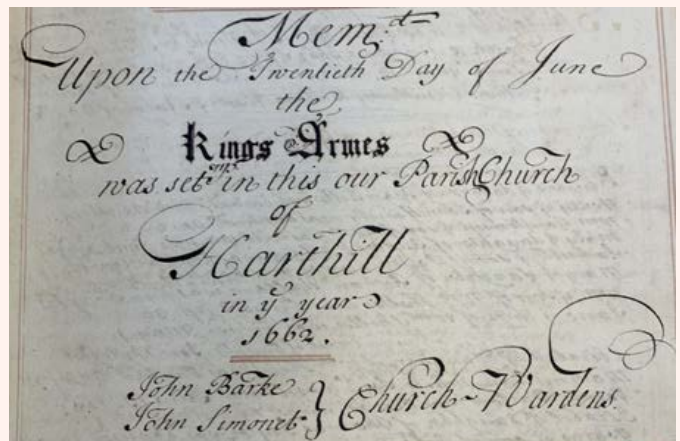 Mem:d
Upon the Twentieth Day of June
the
Kings Armes
was set up in this our Parish Church
of
Harthill
in ye year
1662.
John Barke
John Simones } Church-Wardens